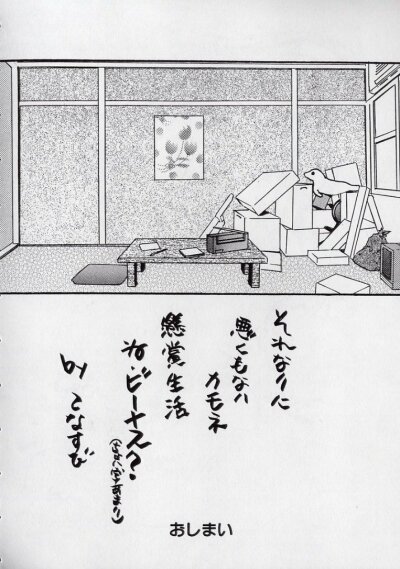 それなりに
悪くもない
カモネ
懸賞生活
ネ、ビーナス?
by こなすび
おしまい